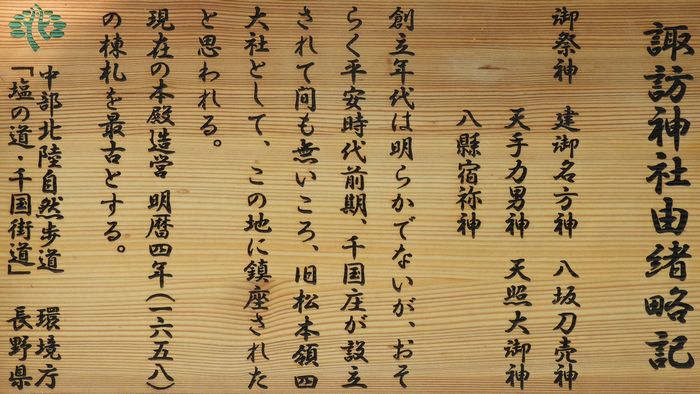 諏訪神社由緒略記
御祭神 建御名方神 八坂刀売神
天手力男神 天照大御神
八縣宿祢神
創立年代は明らかでないが、おそ
らく平安時代前期、千国庄が設立
されて間も無いころ、旧松本領四
大社として、この地に鎮座された
と思われる。
現在の本殿造営 明暦四年(一六五八)
の棟札を最古とする。
中部北陸自然歩道 環境庁
「塩の道・千国街道」 長野県